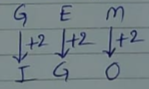 G E M
+2 +2 +2
I G O